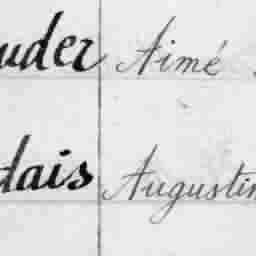 uder Aimé
dais Augustin